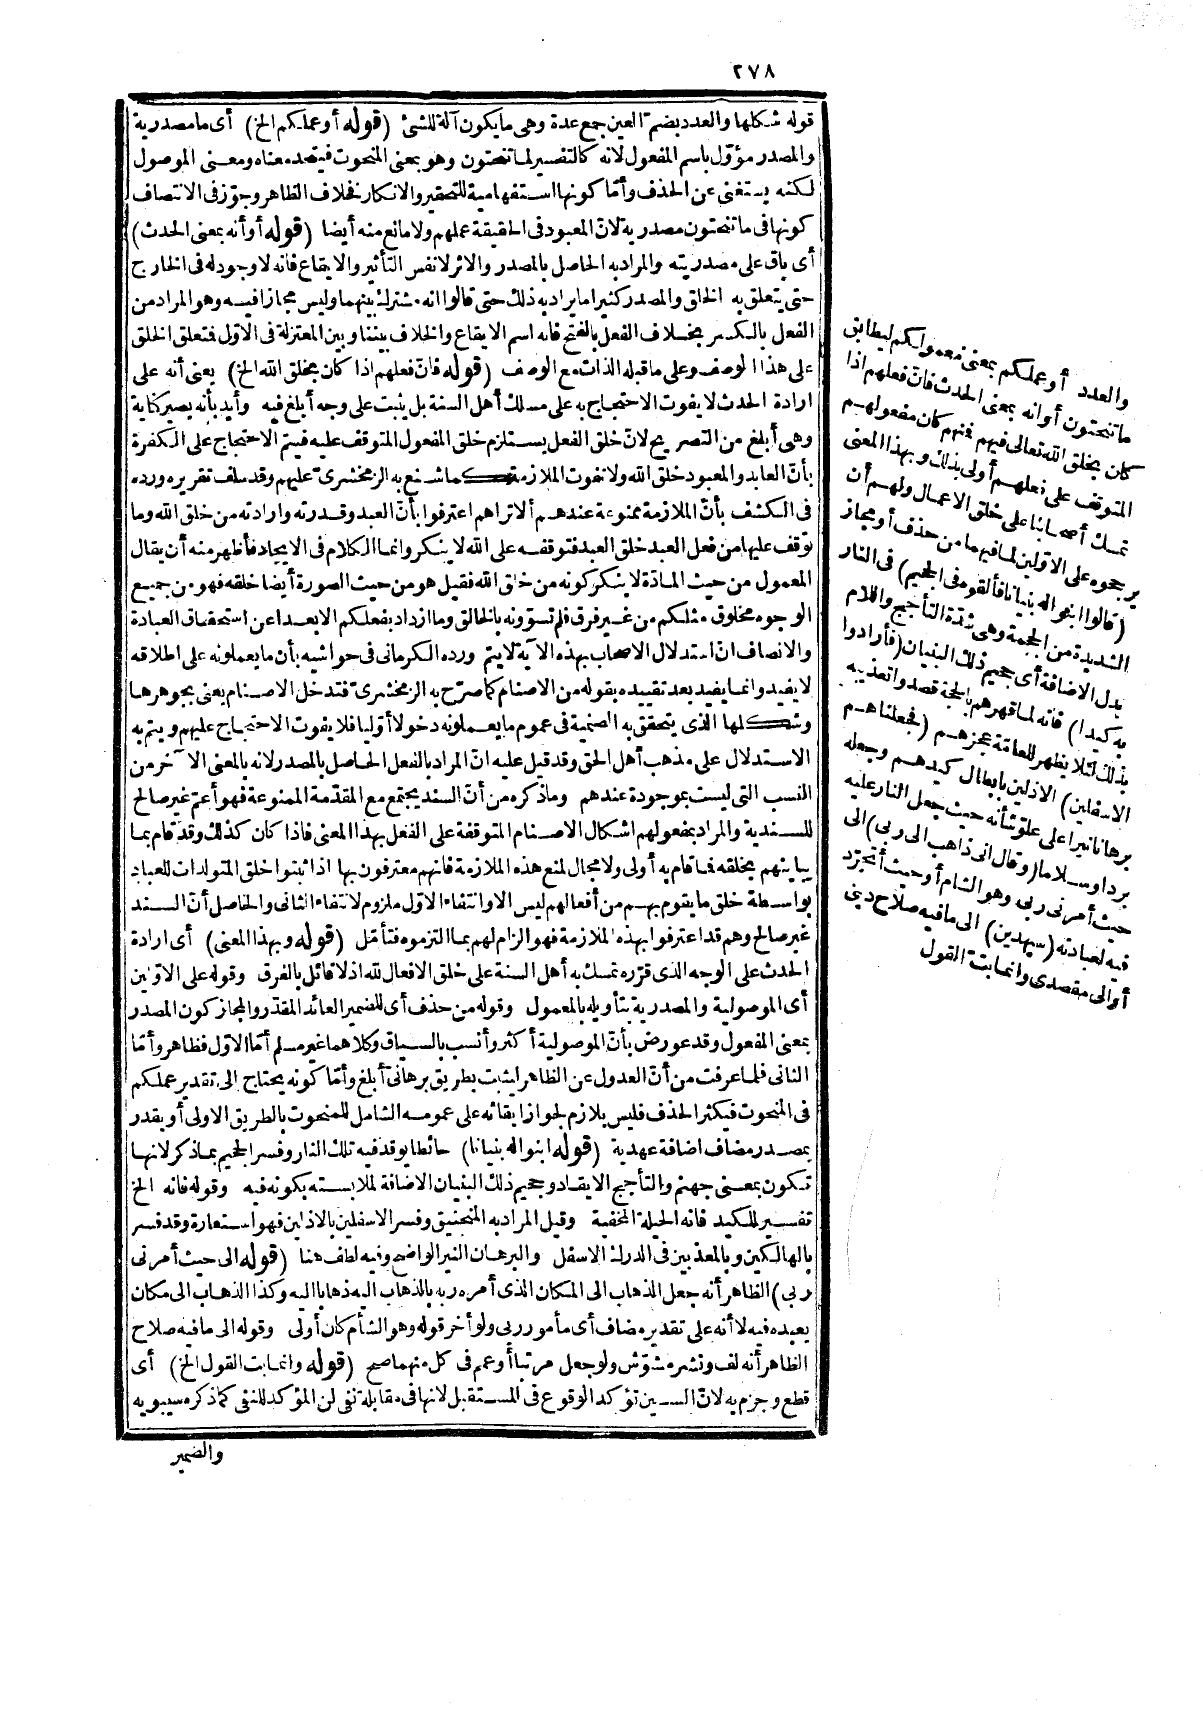 ٢٧٨
قوله شكلها والعدد بضم العين جمع عدة وهى ما يكون آلة للشئ (قوله أو عملكم الخ) أى ما مصدرية
والمصدر مؤوّل باسم المفعول لانه كالتفسير لما تنحتون وهو بمعنى المنحوت فيتحد معناه ومعنى الموصول
لكنه يستغنى عن الحذف وأمّا كونها استفهامية للتحقير والانكار فخلاف الظاهر وجوّز فى الانتصاف
كونها فى ما تنحتون مصدرية لانّ المعبود فى الحقيقة عملهم ولا مانع منه أيضا (قوله أو أنه بمعنى الحدث)
أى باق على مصدريته والمراد به الحاصل بالمصدر والاثر لا نفس التأثير والايقاع فانه لا وجود له فى الخارج
حتى يتعلق به الخلق والمصدر كثيرا ما يراد به ذلك حتى قالوا انه مشترك بينهما وليس مجازا فيه وهو المراد من
الفعل بالكسر بخلاف الفعل بالفتح فانه اسم الايقاع والخلاف بيننا وبين المعتزلة فى الاوّل فتعلق الخلق
على هذا الوصف وعلى ما قبله الذات مع الوصف (قوله فانّ فعلهم اذا كان بخلق الله الخ) يعنى أنه على
ارادة الحدث لا يفوت الاحتجاج به على مسلك أهل السنة بل يثبت على وجه أبلغ فيه وأيد بأنه يصير كناية
وهى أبلغ من التصريح لانّ خلق الفعل يستلزم خلق المفعول المتوقف عليه فيتم الاحتجاج على الكفرة
بأنّ العابد والمعبود خلق الله ولا تفوت الملازمة كما شنع به الزمخشرى عليهم وقد سلف تقريره ورده
فى الكشف بأنّ الملازمة ممنوعة عندهم ألا تراهم اعترفوا بأنّ العبد وقدرته وارادته من خلق الله وما
توقف عليها من فعل العبد خلق العبد فتوقفه على الله لا ينكر وانما الكلام فى الايجاد فأظهر منه أن يقال
المعمول من حيث المادّة لا ينكر كونه من خلق الله فقيل هو من حيث الصورة أيضا خلقه فهو من جميع
الوجوه مخلوق مثلكم من غير فرق فلم تسوّونه بالخالق وما ازداد بفعلكم الا بعدا عن استحقاق العبادة
والانصاف انّ استدلال الاصحاب بهذه الآية لا يتم ورده الكرمانى فى حواشيه بأن ما يعملونه على اطلاقه
لا يفيد وانما يفيد بعد تقييده بقوله من الاصنام كما صرّح به الزمخشرى فتدخل الاصنام يعنى بجوهرها
وشكلها الذى يتحقق به الصنمية فى عموم ما يعملونه دخولا أوليا فلا يفوت الاحتجاج عليهم ويتم به
الاستدلال على مذهب أهل الحق وقد قيل عليه انّ المراد بالفعل الحاصل بالمصدر لانه بالمعنى الآخر من
النسب التى ليست بموجودة عندهم وما ذكره من أنّ السند يجتمع مع المقدّمة الممنوعة فهو أعمّ غير صالح
للسندية والمراد بمفعولهم اشكال الاصنام المتوقفة على الفعل بهذا المعنى فاذا كان كذلك وقد قام بما
يباينهم بخلقه فما قام به أولى ولا مجال لمنع هذه الملازمة فانهم معترفون بها اذ اثبتوا خلق المتولدات للعباد
بواسطة خلق ما يقوم بهم من أفعالهم ليس الا وانتفاء الاوّل ملزوم لانتفاء الثانى والحاصل أنّ السند
غير صالح وهم قد اعترفوا بهذه الملازمة فهو الزام لهم بما التزموه فتأمّل (قوله وبهذا المعنى) أى ارادة
الحدث على الوجه الذى قرّره تمسك به أهل السنة على خلق الافعال لله اذ لا قائل بالفرق وقوله على الاوّلين
أى الموصولية والمصدرية بتأويله بالمعمول وقوله من حذف أى للضمير العائد المقدّر والمجاز كون المصدر
بمعنى المفعول وقد عورض بأنّ الموصولية أكثر وأنسب بالسياق وكلاهما غير مسلم أمّا الاوّل فظاهر وأمّا
الثانى فلما عرفت من أنّ العدول عن الظاهر ليثبت بطريق برهانى أبلغ وأمّا كونه يحتاج الى تقدير عملكم
فى المنحوت فيكثر الحذف فليس بلازم لجواز ابقائه على عمومه الشامل للمنحوت بالطريق الاولى أو يقدر
بمصدر مضاف اضافة عهدية (قوله ابنوا له بنيانا) حائطا يوقد فيه تلك النار وفسر الجحيم بما ذكر لانها
تكون بمعنى جهنم والتأجيج الايقاد وجحيم ذلك البنيان الاضافة لملابسته بكونه فيه وقوله فانه الخ
تفسير للكيد فانه الحيلة المخفية وقيل المراد به المنجنيق وفسر الاسفلين بالاذلين فهو استعارة وقد فسر
بالهالكين وبالمعذبين فى الدرك الاسفل والبرهان النير الواضح وفيه لطف هنا (قوله الى حيث أمرنى
ربى) الظاهر أنه جعل الذهاب الى المكان الذى أمره ربه بالذهاب اليه ذهابا اليه وكذا الذهاب الى مكان
يعبده فيه لا أنه على تقدير مضاف أى مأمور ربى ولو أخر قوله وهو الشأم كان أولى وقوله الى ما فيه صلاح
الظاهر أنه لف ونشر مشوّش ولو جعل مرتبا أو عمم فى كل منهما صح (قوله وانما بت القول الخ) أى
قطع وجزم به لانّ السين تؤكد الوقوع فى المستقبل لانها فى مقابلة نفى لن المؤكد للنفى كما ذكره سيبويه
والضمير
والعدد أو عملكم بمعنى معمولكم ليطابق
ما تنحتون أو انه بمعنى الحدث فانّ فعلهم اذا
كان بخلق الله تعالى فيهم كان مفعولهم
المتوقف على فعلهم أولى بذلك وبهذا المعنى
تمسك أصحابنا على خلق الاعمال ولهم أن
يرجحوه على الاوّلين لما فيهما من حذف أو مجاز
(قالوا ابنوا له بنيانا فألقوه فى الجحيم) فى النار
الشديدة من الجحمة وهى شدّة التأجج واللام
بدل الاضافة أى جحيم ذلك البنيان (فأرادوا
به كيدا) فانه لما قهرهم بالحجة قصدوا تعذيبه
بذلك لئلا يظهر للعامّة عجزهم (فجعلناهم
الاسفلين) الاذلين بابطال كيدهم وجعله
برهانا نيرا على علوّ شأنه حيث جعل النار عليه
بردا وسلاما (وقال انى ذاهب الى ربى) الى
حيث أمرنى ربى وهو الشام أو حيث أتجرّد
فيه لعبادته (سيهدين) الى ما فيه صلاح دينى
أو الى مقصدى وانما بت القول